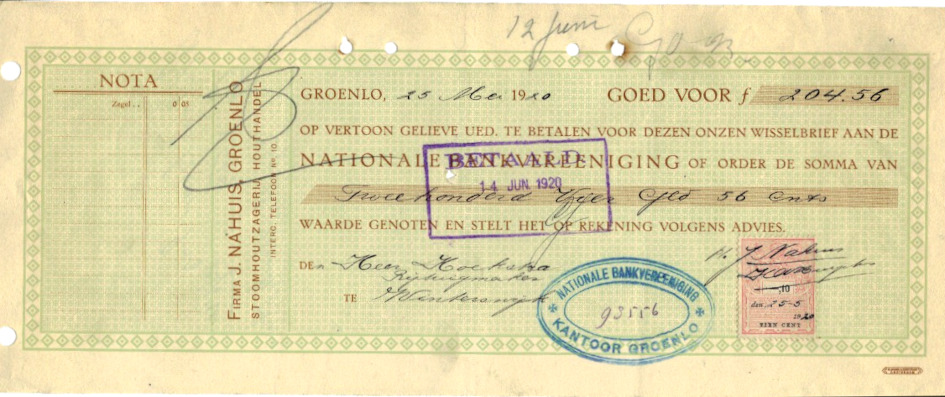 12 Juni
NOTA
Zegel . . 0 05
FIRMA J. NAHUIS, GROENLO
STOOMHOUTZAGERIJ HOUTHANDEL
INTERC. TELEFOON No. 10.
GROENLO, 25 Mei 1920 GOED VOOR f 204.56
OP VERTOON GELIEVE UED. TE BETALEN VOOR DEZEN ONZEN WISSELBRIEF AAN DE
NATIONALE BANKVEREENIGING OF ORDER DE SOMMA VAN
BETAALD
14 JUN. 1920
Tweehonderd Vier Gld 56 Cents
WAARDE GENOTEN EN STELT HET OP REKENING VOLGENS ADVIES.
DEn Heer Hoekstra
Rijtuigmaker
TE Winterswijk
NATIONALE BANKVEREENIGING
93556
KANTOOR GROENLO
,10
den 25-5
1920
TIEN CENT